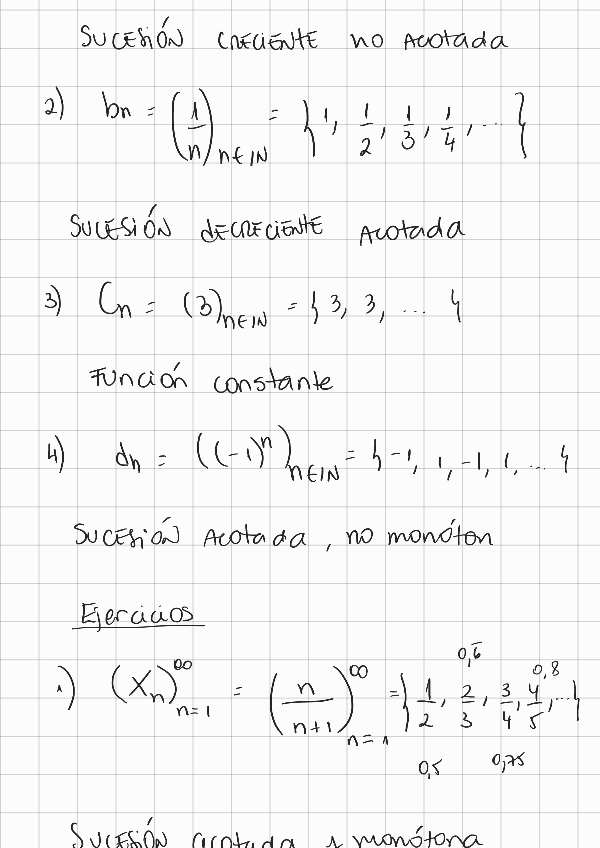 SUCESIÓN CRECIENTE no Acotada
2) bn = (1/n)n∈IN = {1, 1/2, 1/3, 1/4, ... }
SUCESIÓN decreciente Acotada
3) Cn = (3)n∈IN = {3, 3, ... }
Función constante
4) dn = ((-1)^n)n∈IN = {-1, 1, -1, 1, ... }
SUCESIÓN Acotada, no monóton
Ejercicios
1) (Xn)^∞ n=1 = (n/n+1)^∞ n=1 = {1/2, 2/3, 3/4, 4/5, ... }
0,6̅ 0,8
0,5 0,75
SUCESIÓN acotada y monótona